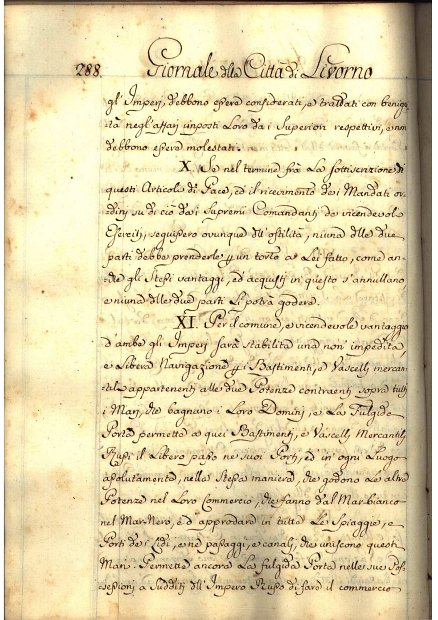 288. Giornale della Città di Livorno
gl' Imperj, debbono essere considerati, e trattati con benig-
nità negl'affarj imposti Loro da i Superiori respettivi, e non
debbono essere molestati.
X. Se nel termine frà La sottiscrizione di
questi Articoli di Pace, ed il ricevimento dei Mandati or-
dinj su di ciò dai Supremi Comandanti de vicendevole
Eserciti, seguissero ovunque dell'ostilità, niuna delle due
parti debba prenderle p un torto a Lei fatto, come an-
che gli Stessi vantaggi, ed acquisti in questo s'annullano
e niuna delle due parti Li potrà godere.
XI. Per il comune, e vicendevole vantaggio
d'ambo gli Imperj sarà Stabilita una non impedita,
e Libera Navigazione p i Bastimenti, e Vascelli mercan-
tili appartenenti alle due Potenze contraenti sopra tutti
i Mari, che bagnano i Loro Dominj, e La Fulgida
Porta permette a quei Bastimenti, e Vascelli Mercantili
Russi il Libero passo ne suoi Porti, ed in ogni Luogo
assolutamente, nella Stessa maniera, che godono Le altre
Potenze nel Loro Commercio, che fanno dal Mar bianco
nel Mar Nero, ed approdare in tutte Le Spiaggie, e
Porti de i Lidi, e ne passaggi, e canali, che uniscono questi
Mari. Permette ancora La fulgida Porta nelle sue Pos-
sessioni a Sudditi dell'Impero Russo di fare il commercio